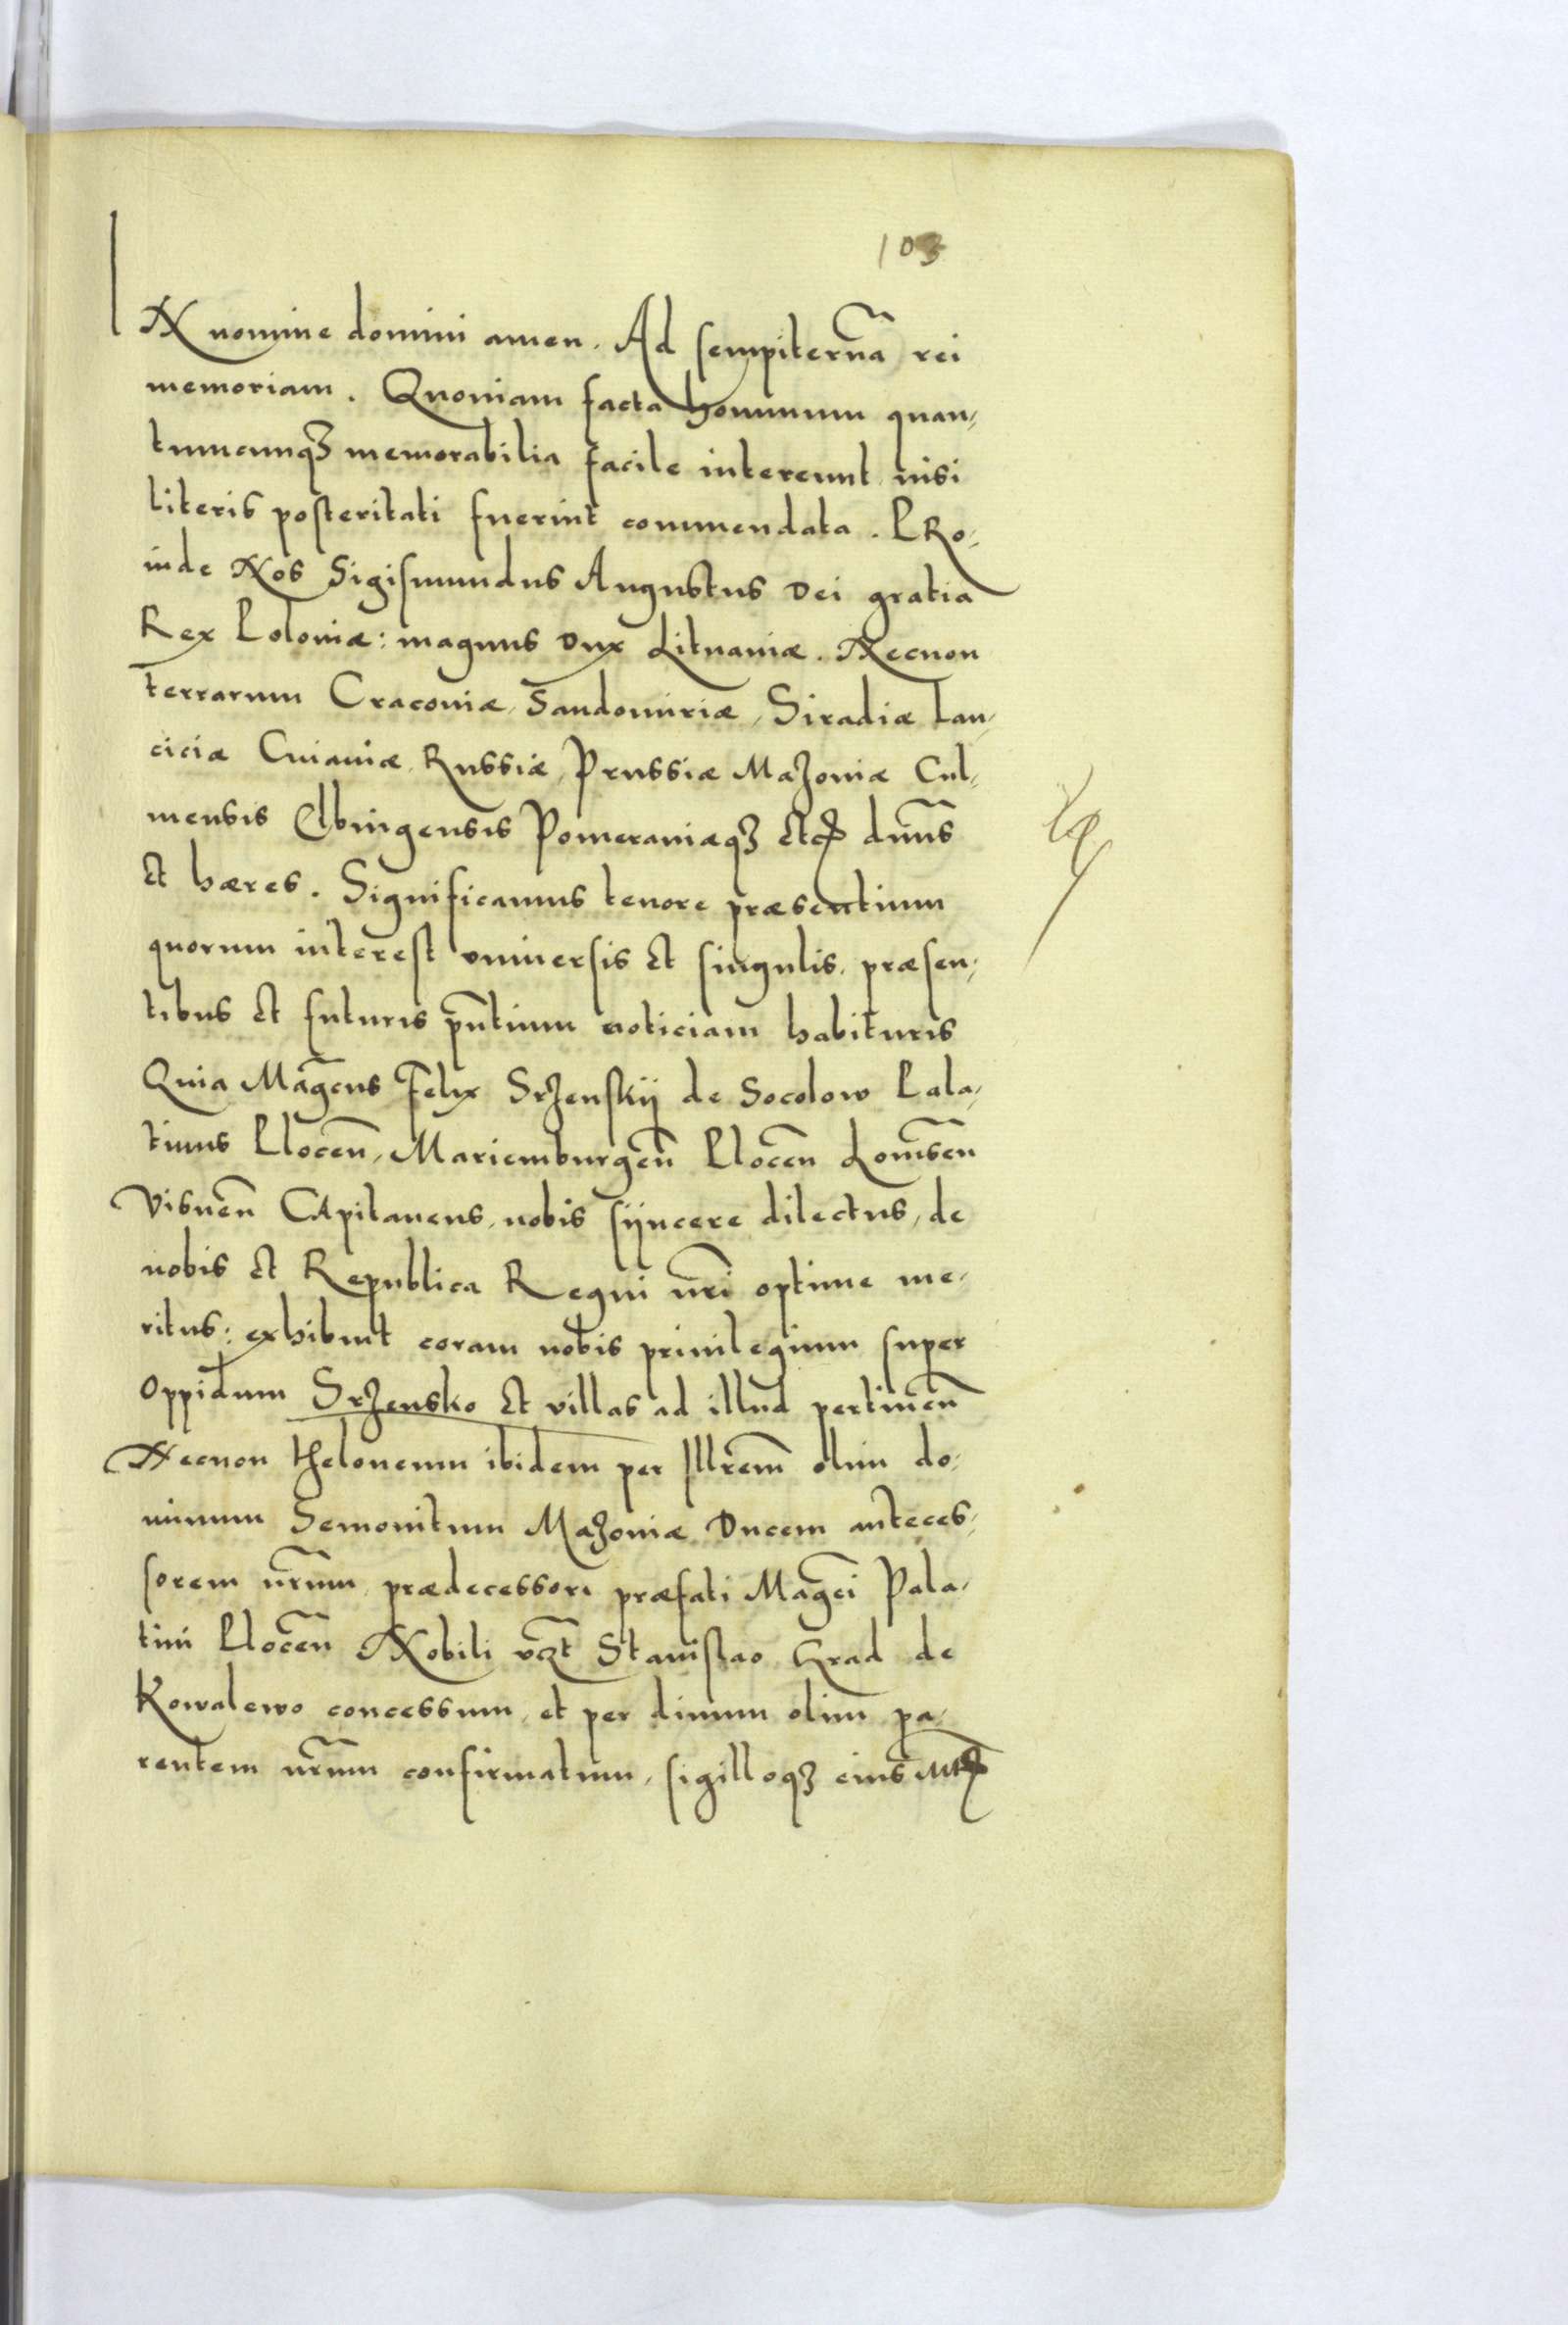 103
IN nomine domini amen. Ad sempiternã rei
memoriam. Quoniam facta hominum quan-
tumcunqꝫ memorabilia facile intereunt nisi
literis posteritati fuerint commendata. PRo-
inde Nos Sigismundus Augustus Dei gratia
Rex Poloniæ: magnus Dux Lituaniæ. Necnon
terrarum Cracoviæ, Sandomiriæ, Siradiæ Lan-
ciciæ Cuiaviæ, Russiæ, Prussiæ Mazoviæ Cul-
mensis Elbingensis Pomeraniæqꝫ etc̃ dñus
et hæres. Significamus tenore præsentium
quorum interest universis et singulis, præsen-
tibus et futuris pñtium noticiam habituris
Quia Magcũs Felix Srzenskij de Socolow Pala-
tinus Plocen̄, Mariemburgen̄ Plocen̄ Lomsen̄
Visnen̄ CApitaneus, nobis sijncere dilectus, de
nobis et Republica Regni nr̃i optime me-
ritus: exhibuit coram nobis privilegium super
oppidum Srzensko et villas ad illud pertinen̄
Necnon theloneum ibidem per Illrem̄ olim do-
minum Semovitum Mazoviæ Ducem anteces-
sorem nr̃um, prædecessori præfati Magc̃i Pala-
tini Plocen̄ Nobili vꝫt Stanislao Grad de
Kowalewo concessum, et per divum olim pa-
rentem nr̃um confirmatum, sigilloqꝫ eius Mtis